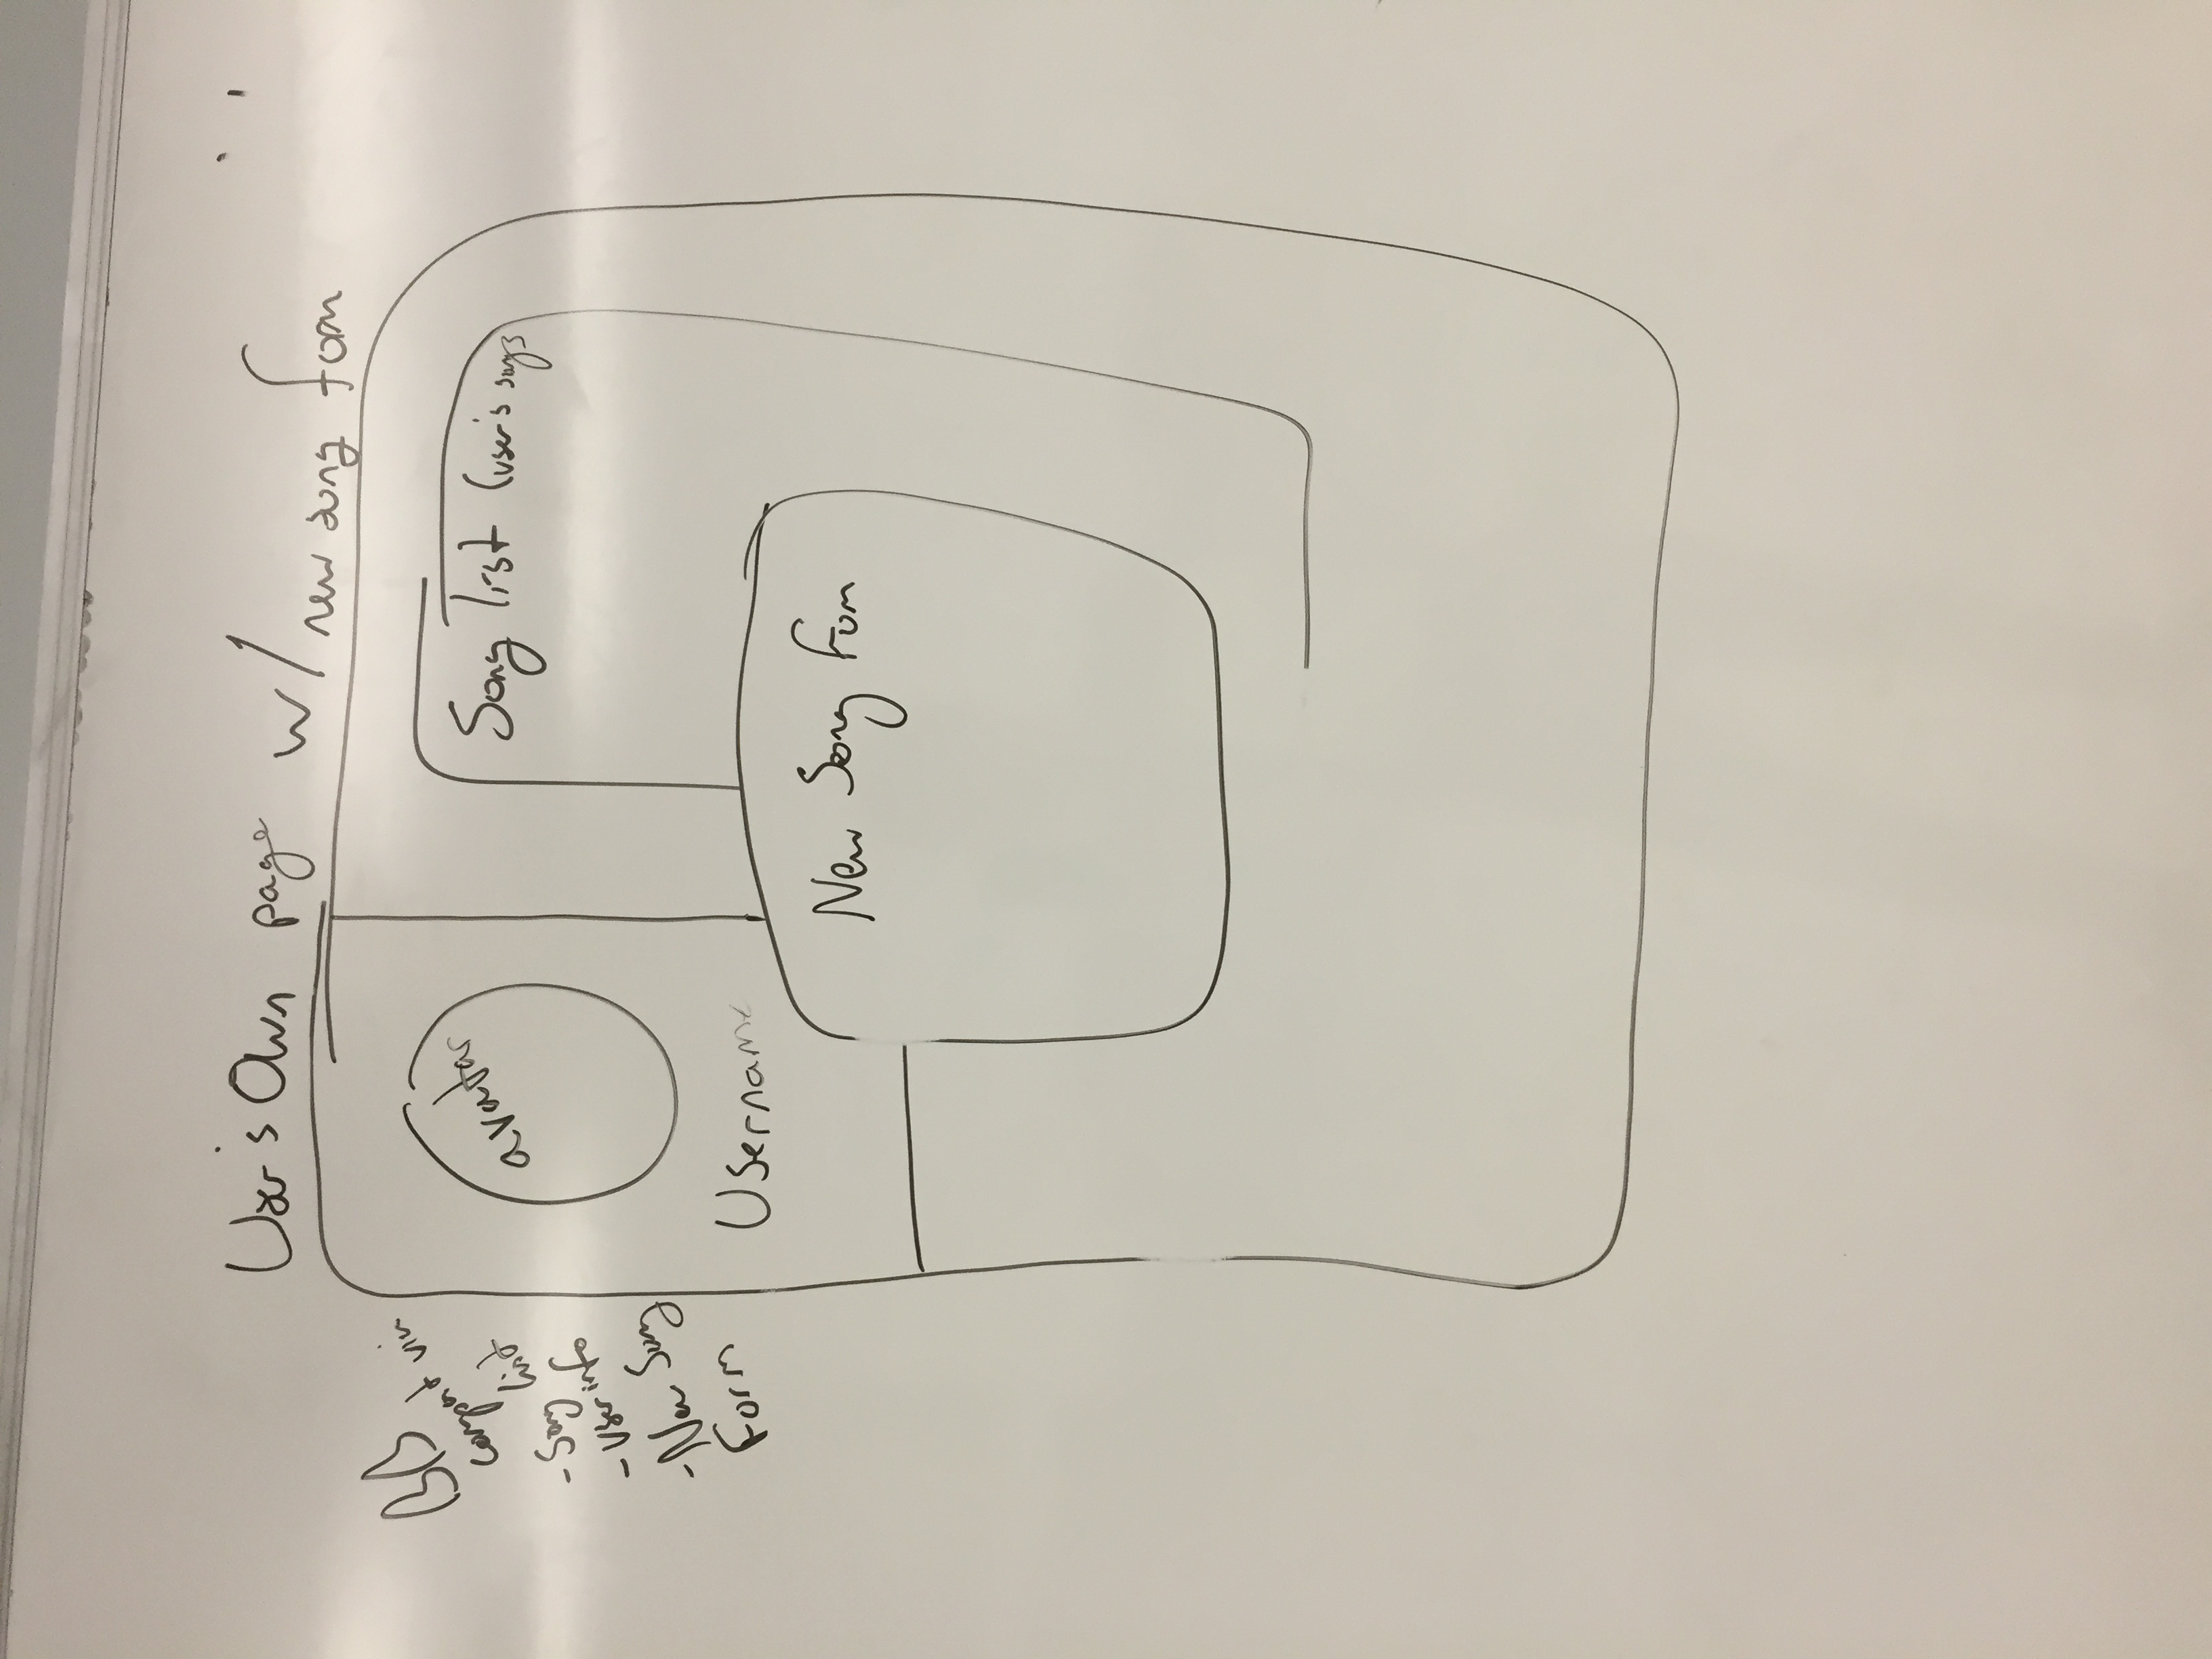 User's Own page w/ new song form
BB
- Song list
- User info
- New Song
Form
avatar
Username
Song list (user's songs
New Song Form